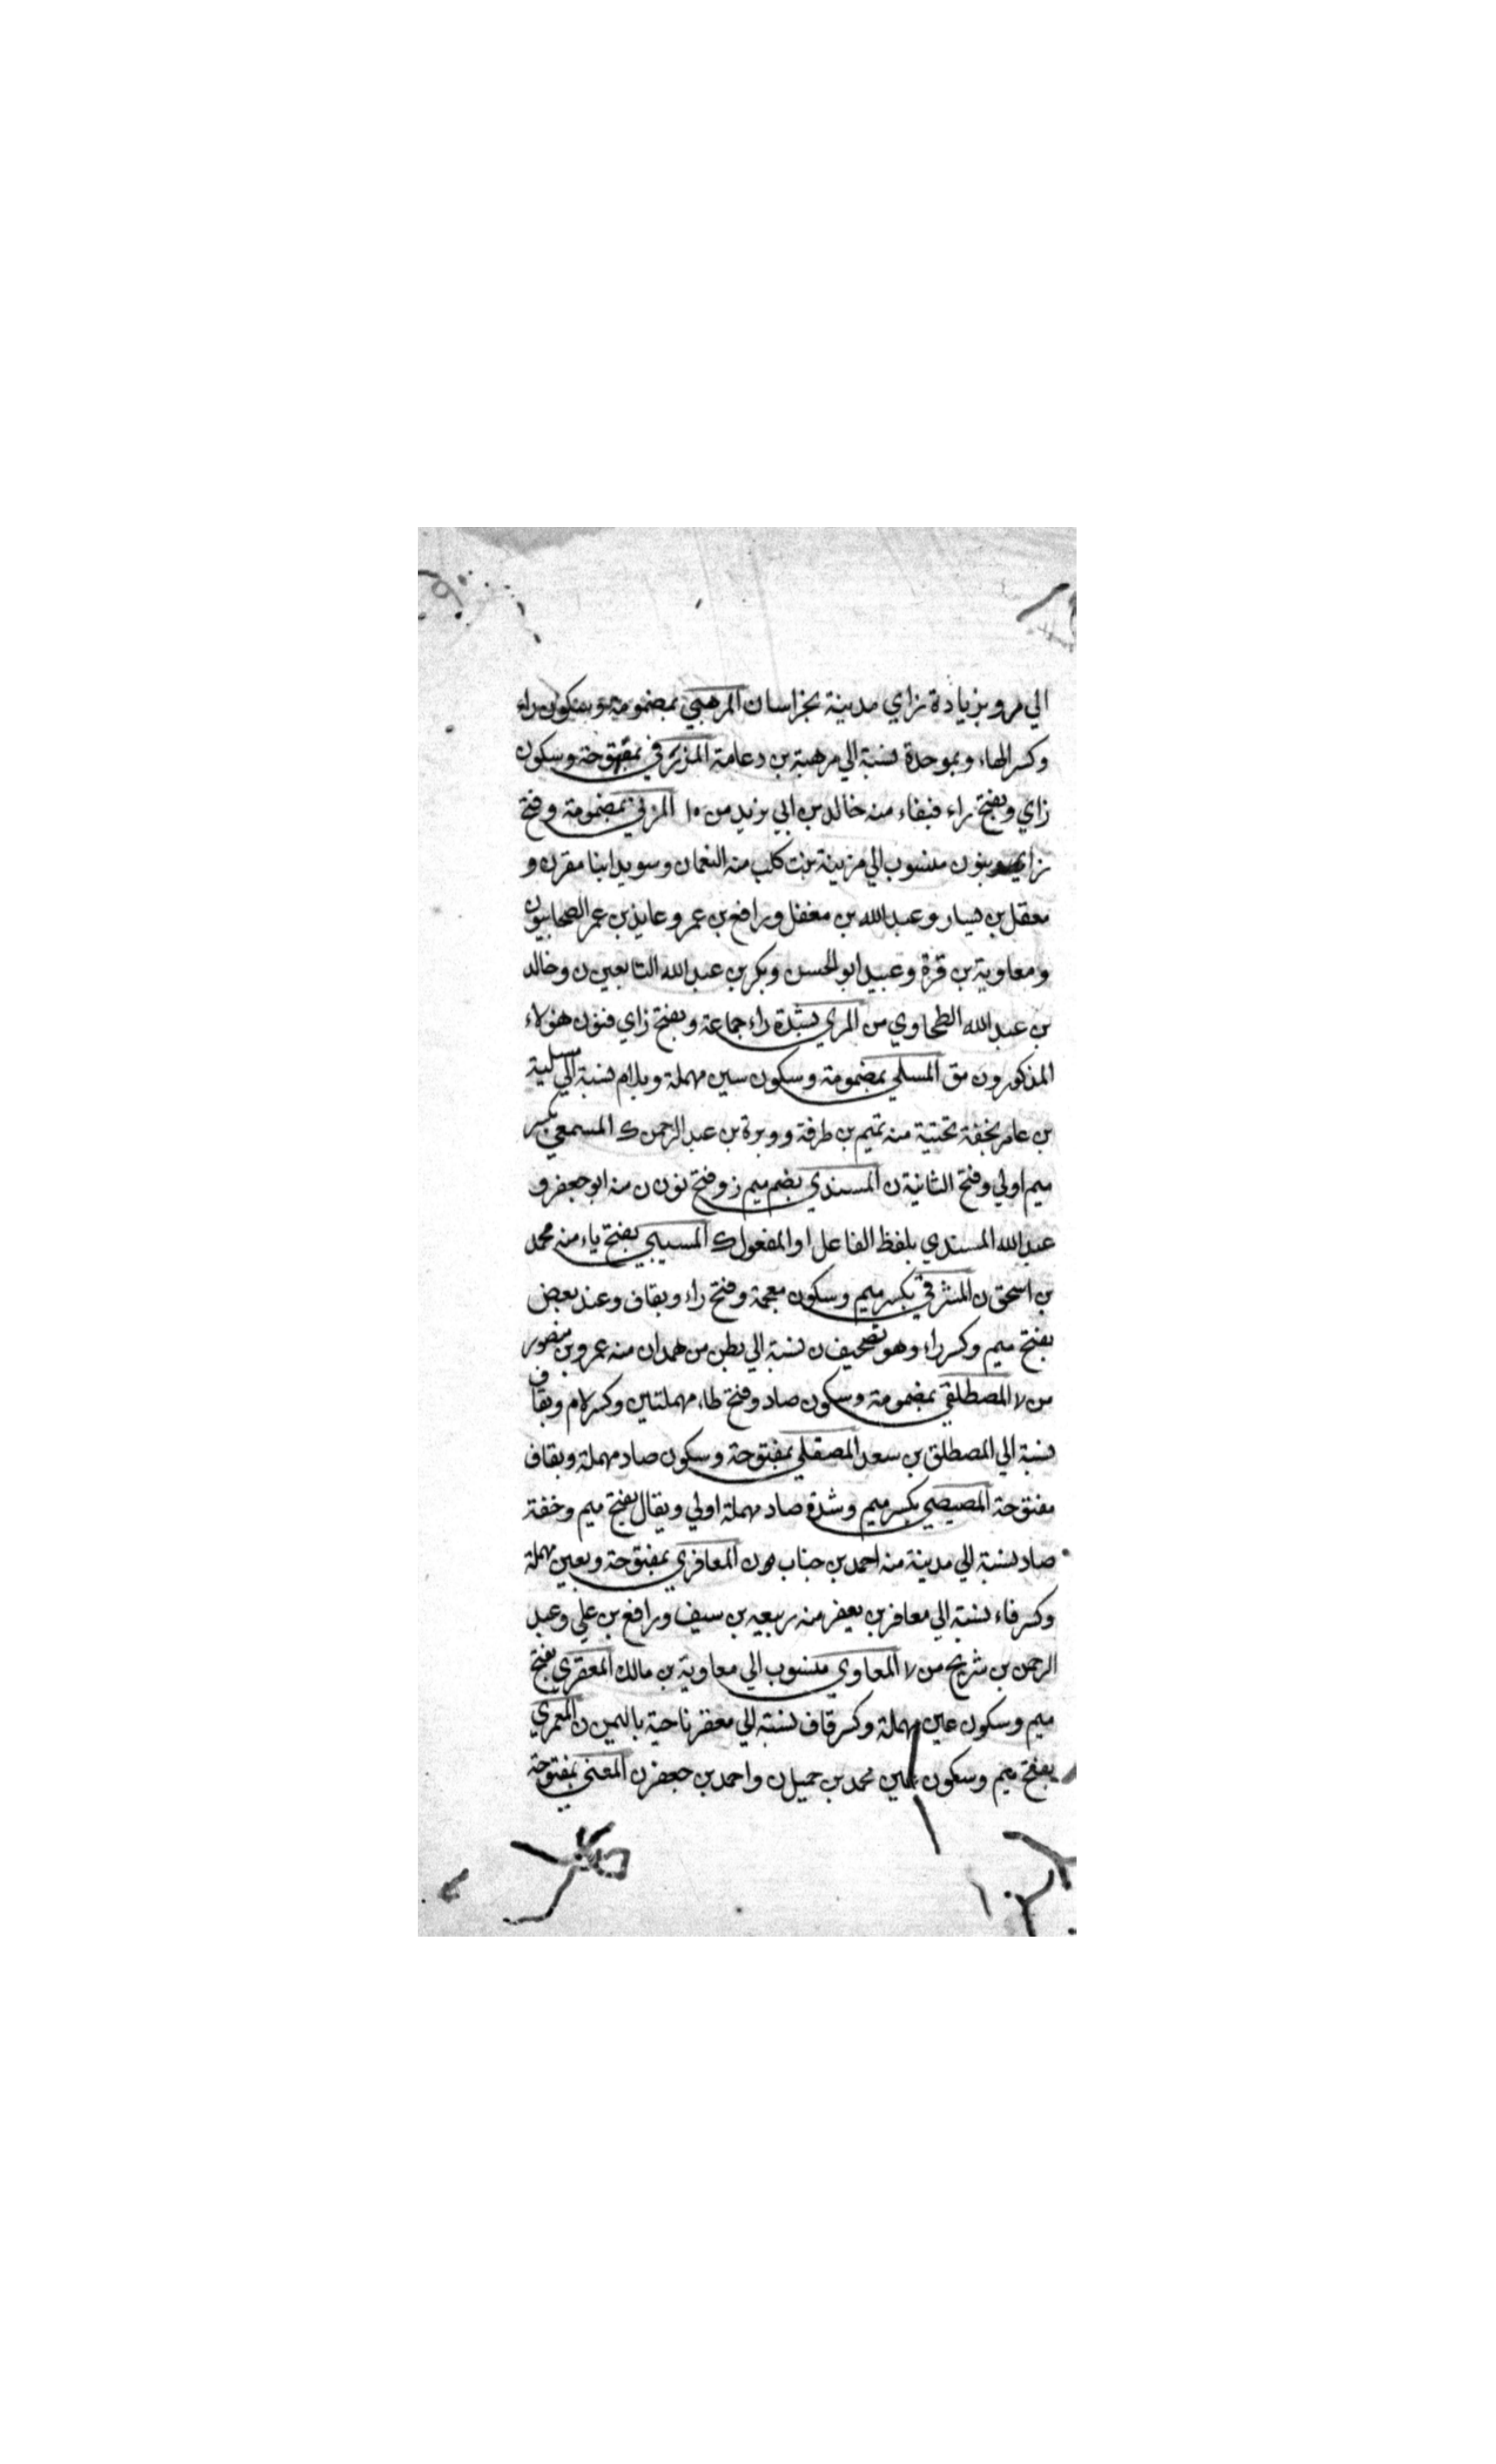 الي مرو بزيادة زاي مدينة بخراسان المرهبي بمضمومة وبسكون راء
وكسر الهاء وبموحدة نسبة الي مرهبة بن دعامة المزرفي بمفتوحة وسكون
زاي وبفتح راء فبفاء منه خالد بن ابي يزيد من ١٥ المزني بمضمومة وفتح
زاي وبنون منسوب الي مزينة بنت كلب منه النعمان وسويد ابنا مقرن و
معقل بن يسار وعبد الله بن مغفل ورافع بن عمر وعايذ بن عمر الصحابيون
ومعاوية بن قرة وعبيد ابو الحسن وبكر بن عبد الله التابعين ن وخالد
بن عبد الله الطحاوي من المري بشدة راء جماعة وبفتح زاي فنون هؤلاء
المذكورون مق المسلي بمضمومة وسكون سين مهملة وبلام نسبة الي مسلية
بن عامر بخفة تحتية منه تميم بن طرفة ووبرة بن عبد الرحمن ك المسمعي بكسر
ميم اولي وفتح الثانية ن المسندي بضم ميم ز وفتح نون ن منه ابو جعفر و
عبد الله المسندي بلفظ الفاعل او المفعول ك المسيبي بفتح ياء منه محمد
بن اسحق ن المشرقي بكسر ميم وسكون معجمة وفتح راء وبقاف وعند بعض
بفتح ميم وكسر راء وهو تصحيف ن نسبة الي بطن من همدان منه عمرو بن منصور
من لا المصطلقي بمضمومة وسكون صاد وفتح طاء مهملتين وكسر لام وبقاف
نسبة الي المصطلق بن سعد المصقلي بمفتوحة وسكون صاد مهملة وبقاف
مفتوحة المصيصي بكسر ميم وشدة صاد مهملة اولي ويقال بفتح ميم وخفة
صاد نسبة الي مدينة منه احمد بن جناب ن المعافري بمفتوحة وبعين مهملة
وكسر فاء نسبة الي معافر بن يعفر منه ربيعه بن سيف ورافع بن علي وعبد
الرحمن بن شريح من لا المعاوي منسوب الي معاوية بن مالك المعقري بفتح
ميم وسكون عين مهملة وكسر قاف نسبة الي معقر ناحية باليمن ن المعمري
بفتح ميم وسكون عين محمد بن حميل ن واحمد بن جعفر ن المعني بمفتوحة